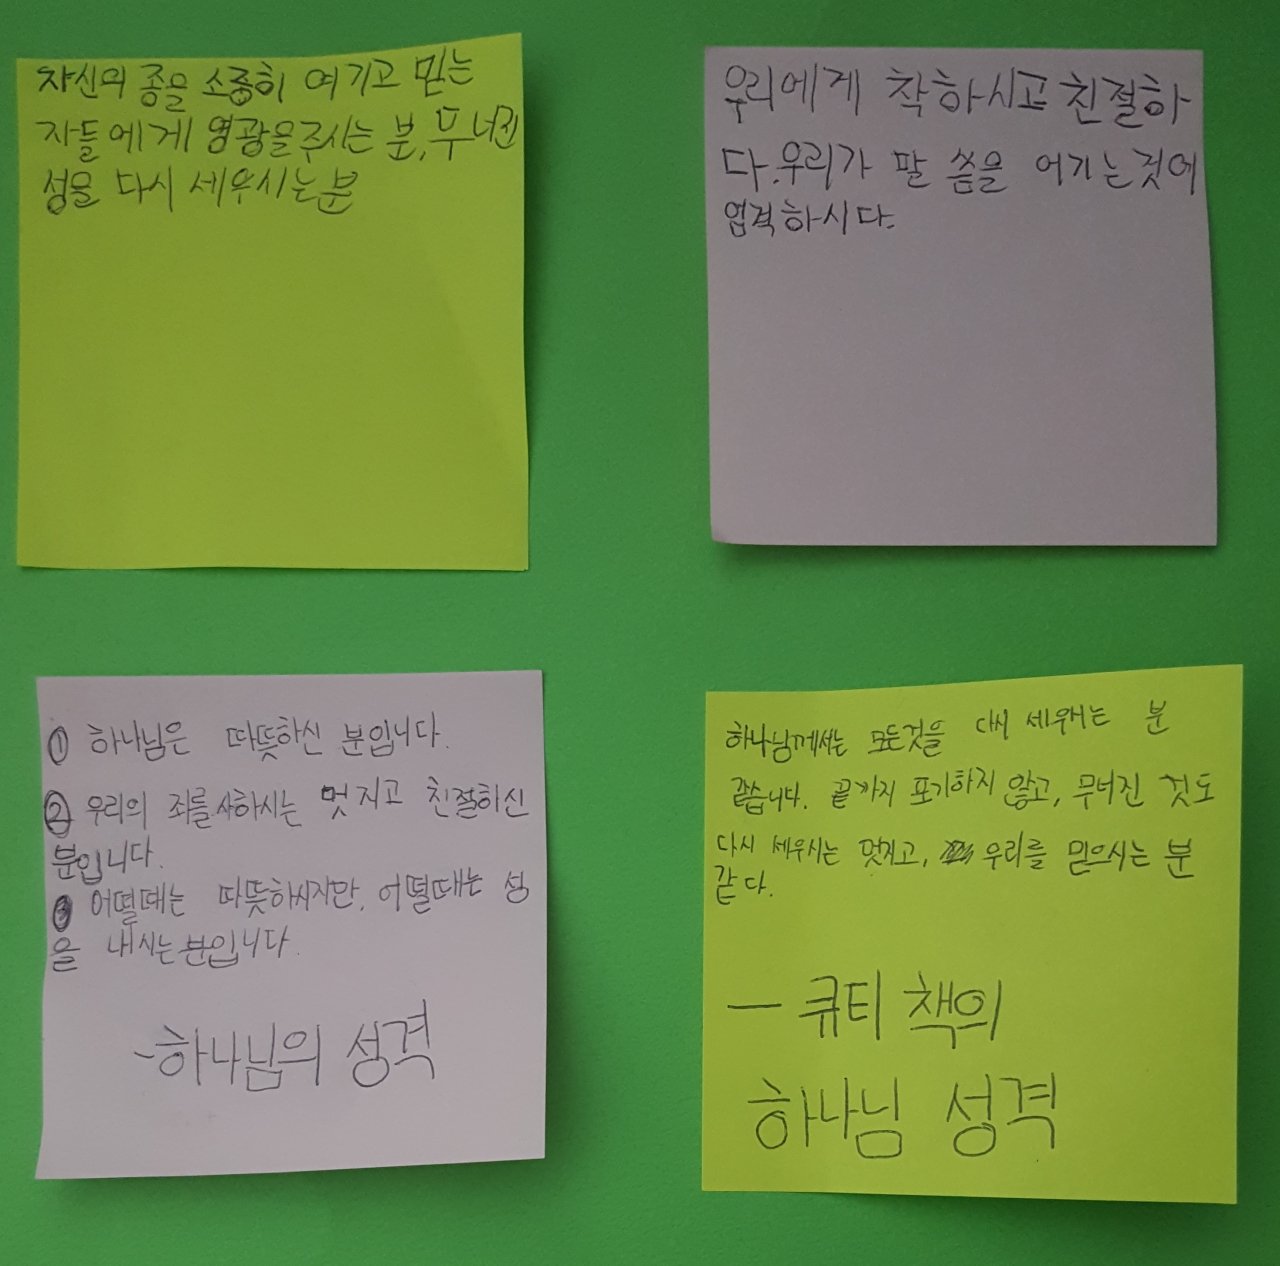 자신의 종을 소중히 여기고 믿는
자들에게 영광을주시는 분, 무너진
성을 다시 세우시는분
우리에게 착하시고 친절하
다. 우리가 말씀을 어기는것에
엄격하시다.
① 하나님은 따뜻하신 분입니다.
② 우리의 죄를 사하시는 멋지고 친절하신
분입니다.
③ 어떨때는 따뜻하시지만, 어떨때는 성
을 내시는분입니다.
-하나님의 성격
하나님께서는 모든것을 다시 세우시는 분
같습니다. 끝까지 포기하지 않고, 무너진 것도
다시 세우시는 멋지고, 우리를 믿으시는 분
같다.
- 큐티 책의
하나님 성격